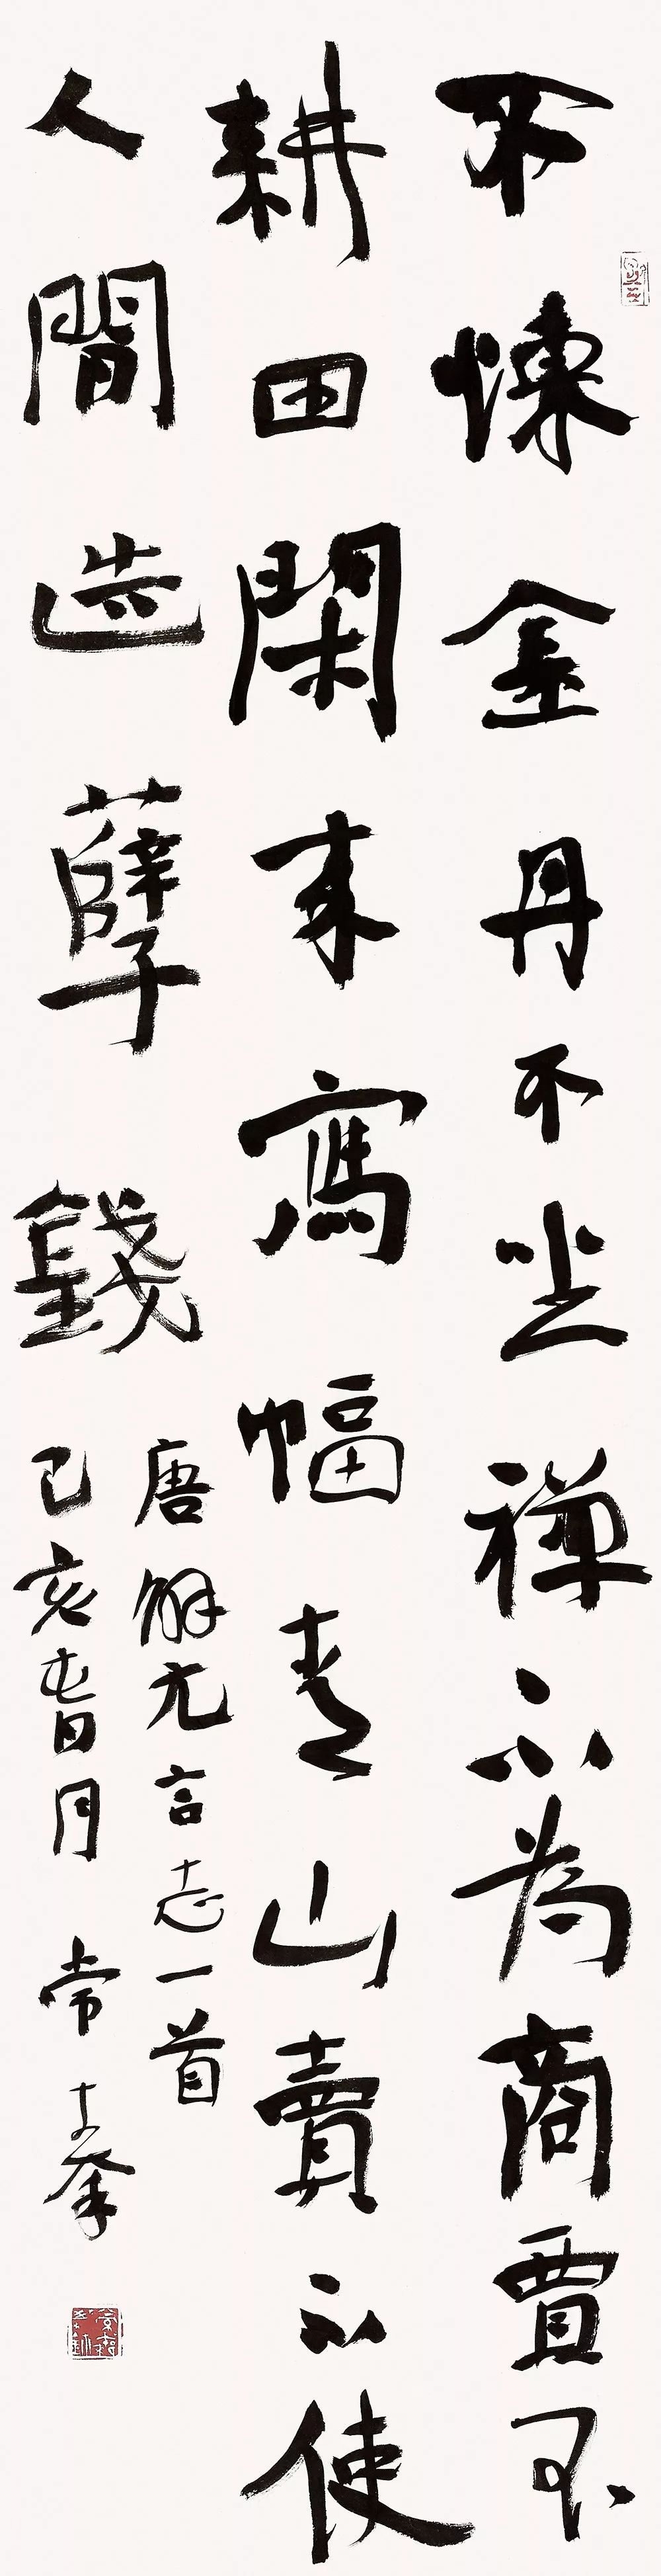 不煉金丹不坐禪不為商賈不
耕田閑來寫幅青山賣不使
人間造孽錢
唐解元言志一首
己亥春月